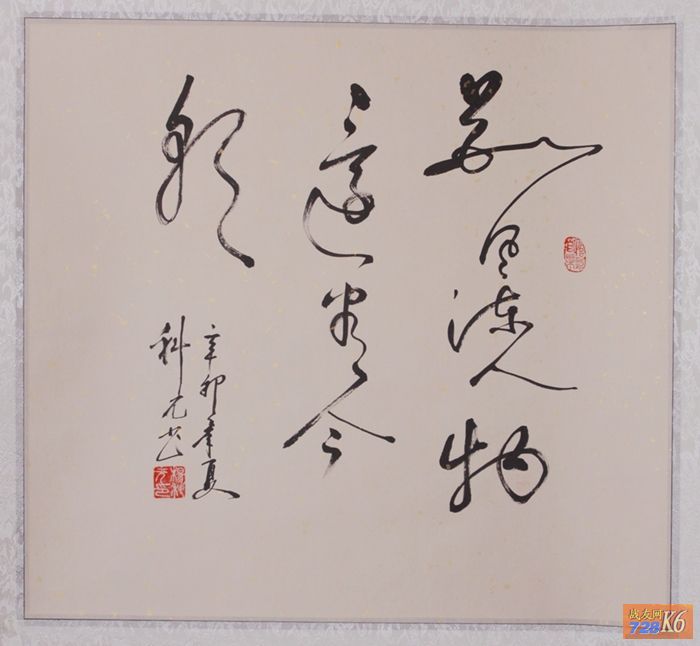 数风流人物
還看今
朝
辛卯年夏
科元书
战友网
728 K6